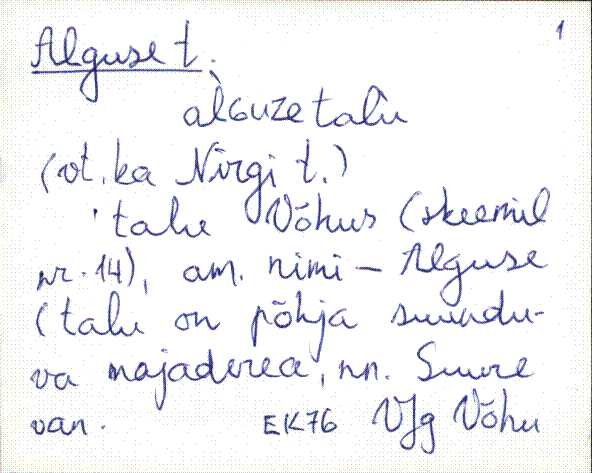 1
Alguse t.
alGuze talu
(vt. ka Nirgi t.)
talu Võhus (skeemil
nr. 14), am. nimi – Alguse
(talu on põhja suundu-
va majaderea, nn. Suure
van.
EK76 VJg Võhu